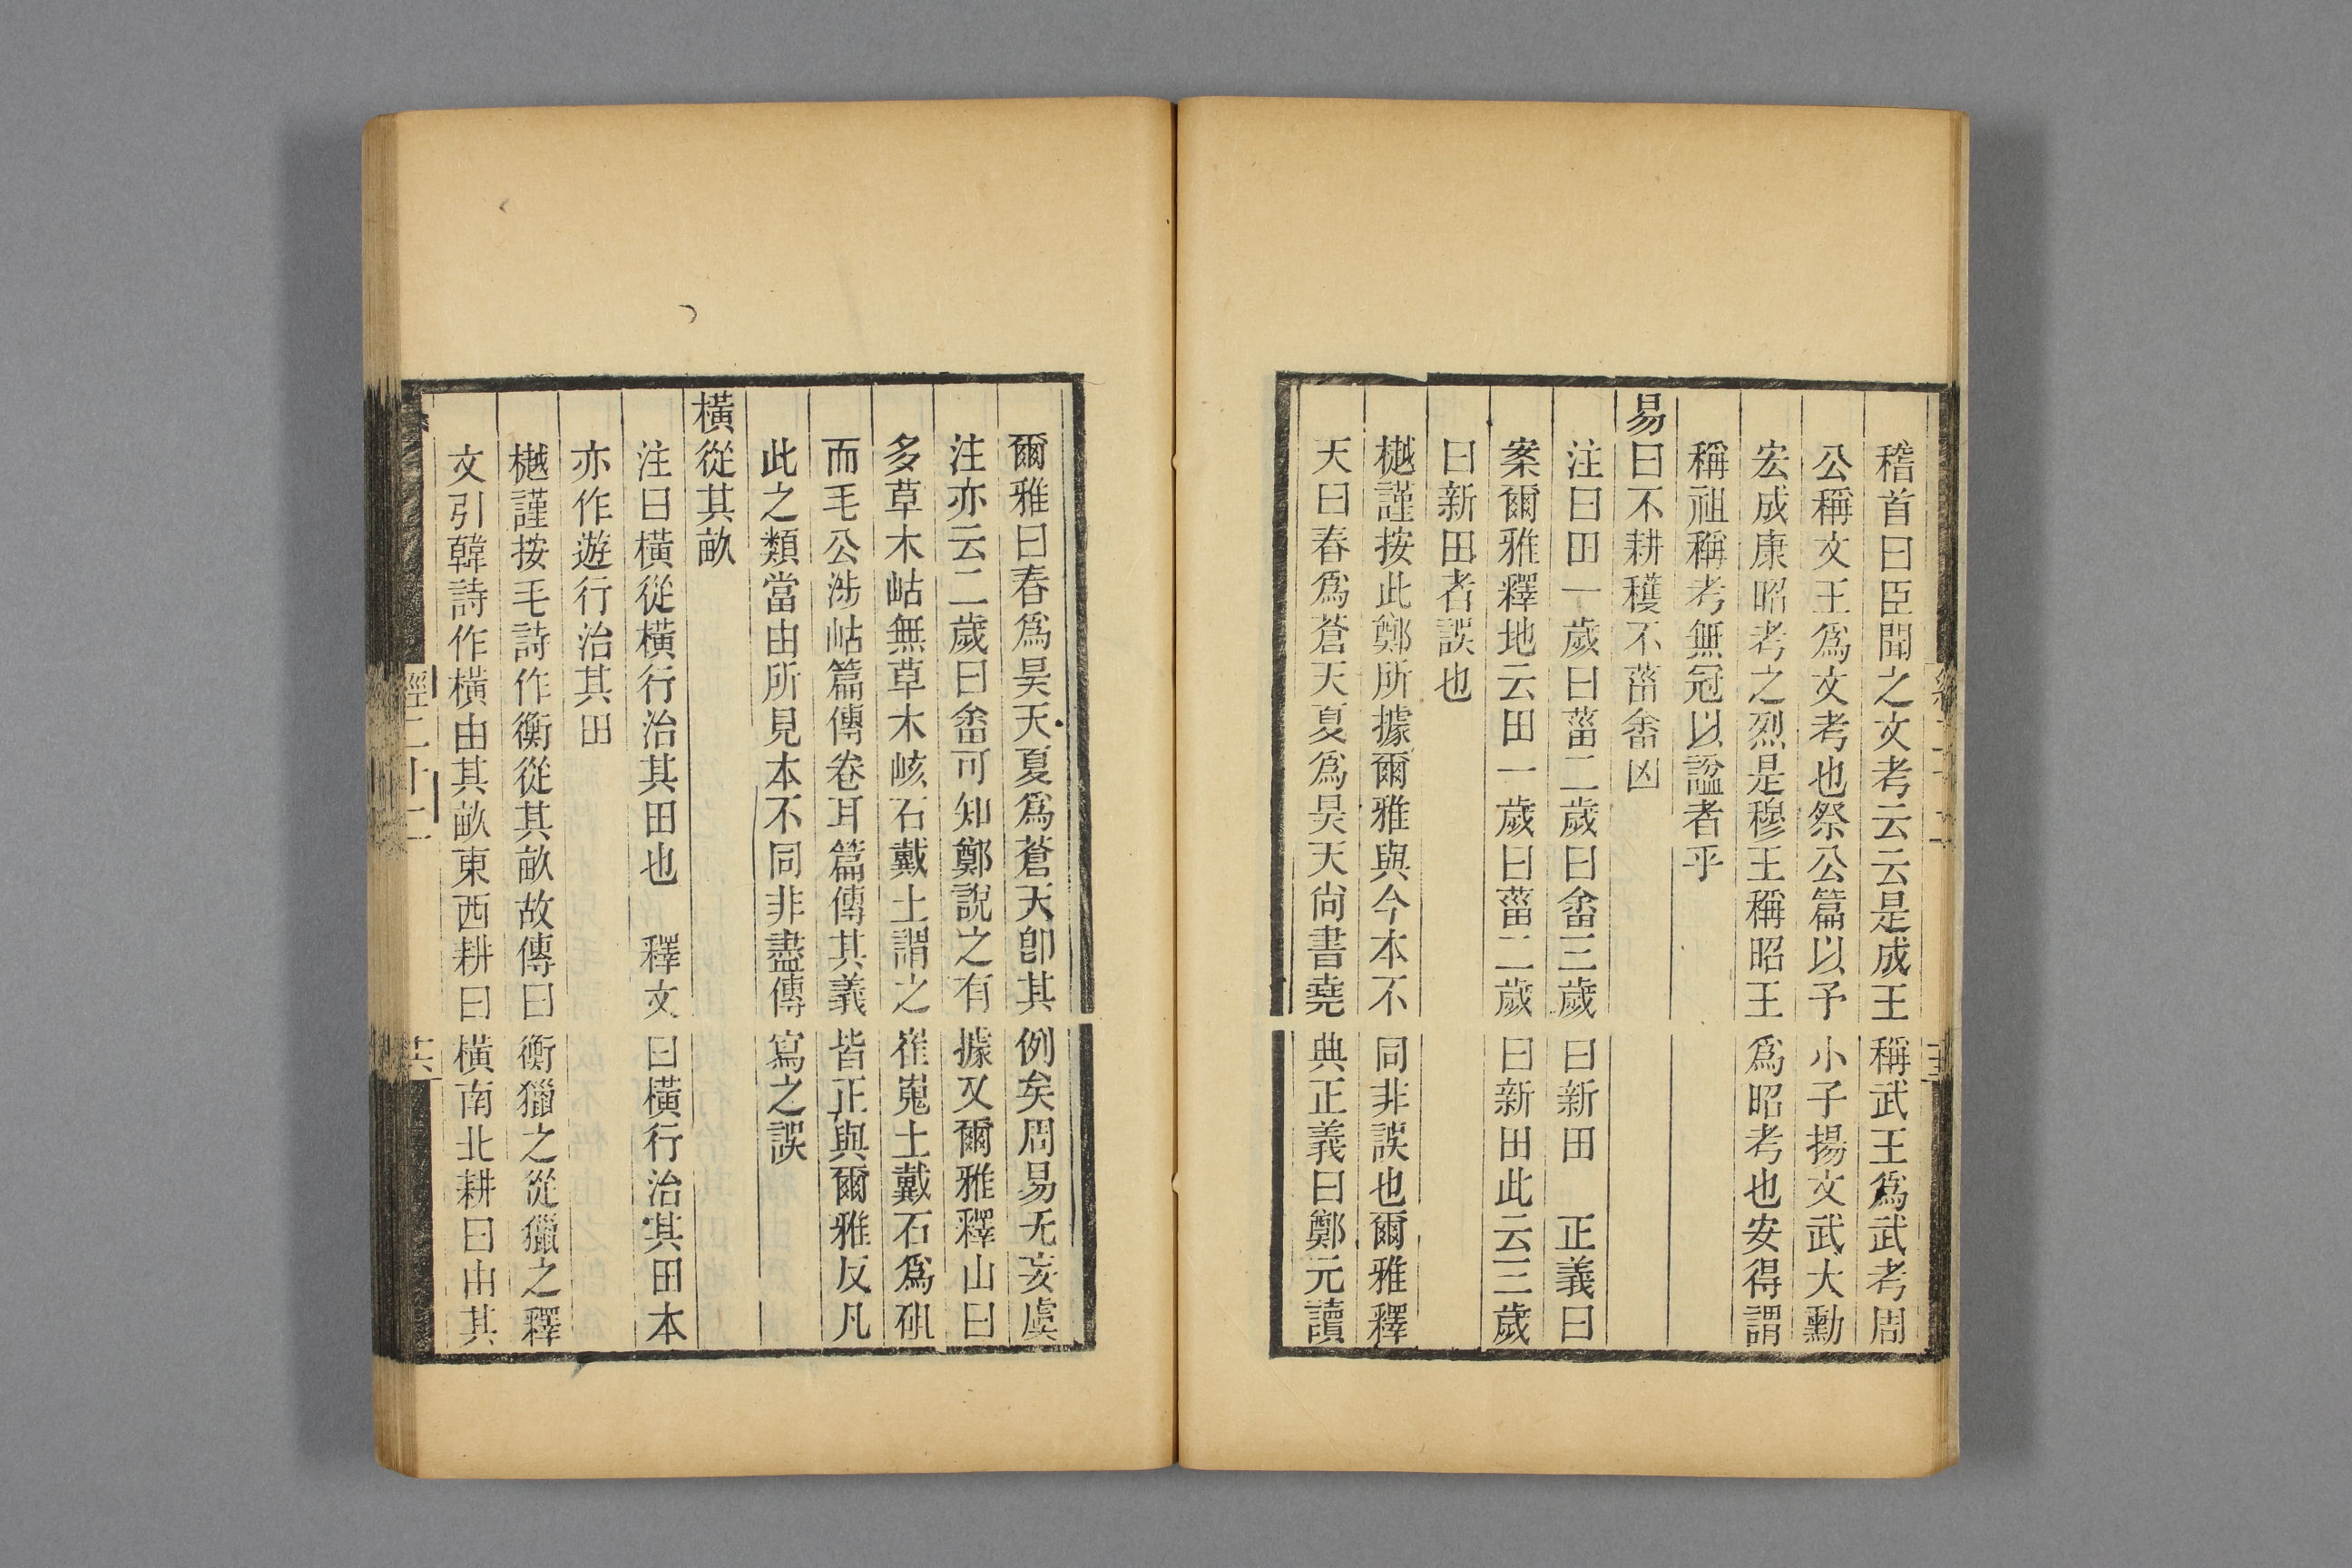 稽首曰臣聞之文考云云是成王稱武王爲武考周
公稱文王爲文考也祭公篇以予小子揚文武大勳
宏成康昭考之烈是穆王稱昭王爲昭考也安得謂
稱祖稱考無冠以諡者乎
易曰不耕穫不菑畬凶
注曰田一歲曰菑二歲曰畬三歲曰新田　正義曰
案爾雅釋地云田一歲曰菑二歲曰新田此云三歲
曰新田者誤也
樾謹按此鄭所據爾雅與今本不同非誤也爾雅釋
天曰春爲蒼天夏爲昊天尙書堯典正義曰鄭元讀
爾雅曰春爲昊天夏爲蒼天卽其例矣周易无妄虞
注亦云二歲曰畬可知鄭說之有據又爾雅釋山曰
多草木岵無草木峐石戴土謂之崔嵬土戴石爲砠
而毛公涉岵篇傳卷耳篇傳其義皆正與爾雅反凡
此之類當由所見本不同非盡傳寫之誤
橫從其畝
注曰橫從橫行治其田也　釋文曰橫行治其田本
亦作遊行治其田
樾謹按毛詩作衡從其畝故傳曰衡獵之從獵之釋
文引韓詩作橫由其畝東西耕曰橫南北耕曰由其
經二十二
共